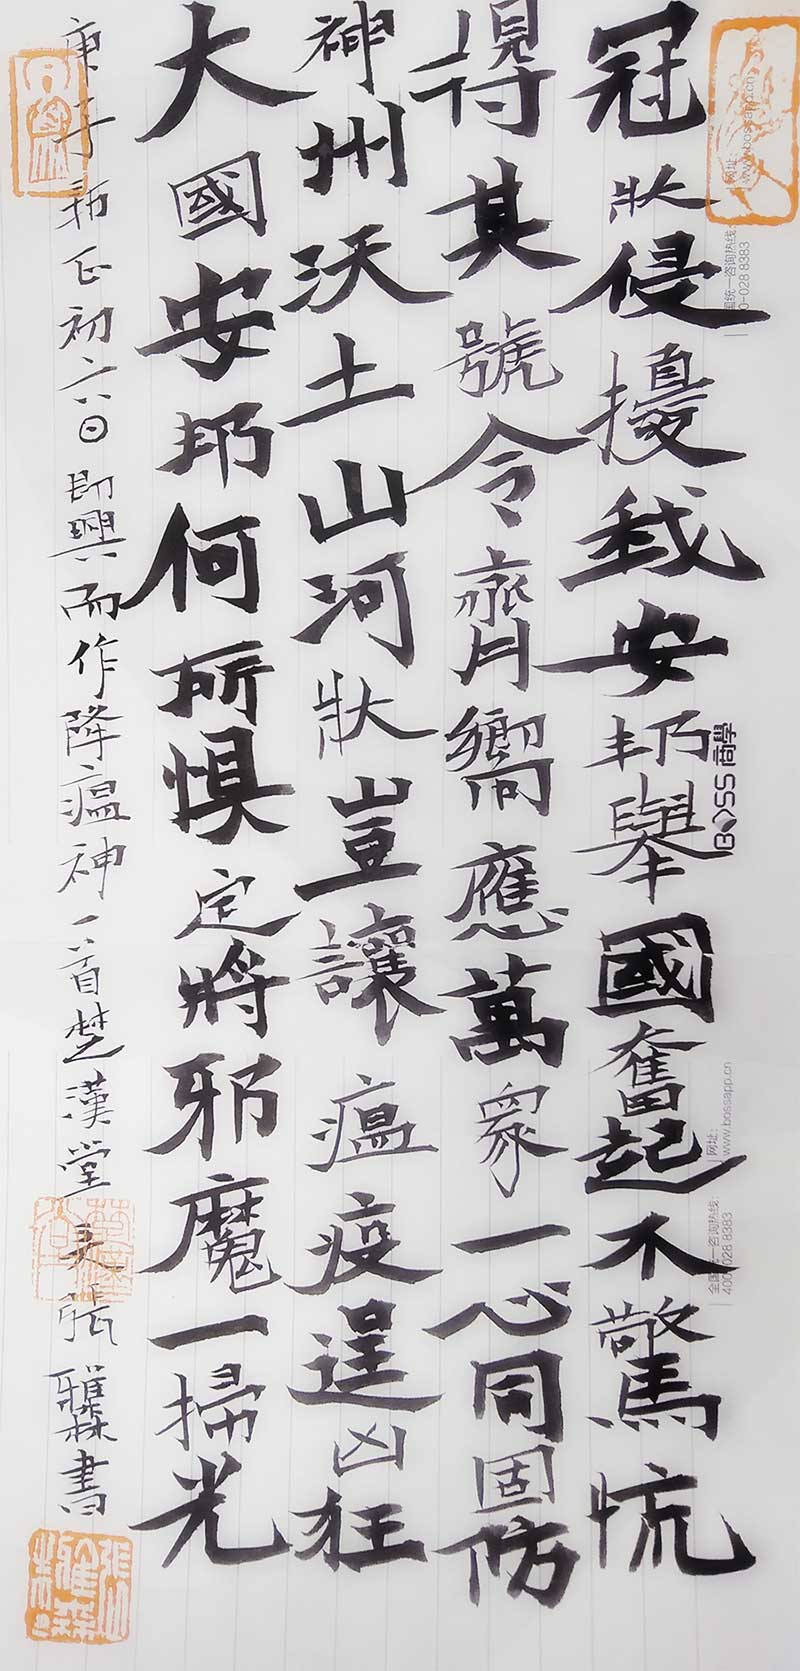 冠狀侵擾我安邦舉國奮起不驚慌
得其號令齊嚮應萬眾一心同固防
神州沃土山河壯豈讓瘟疫逞凶狂
大國安邦何所惧定將邪魔一掃光
庚子 初六日即興而作降瘟神一首楚漢堂 張雅霖書
BOSS 商學
网址:
www.bossapp.cn
全国统一咨询热线:
400-028 8383
网址:
www.bossapp.cn
国统一咨询热线:
0-028 8383